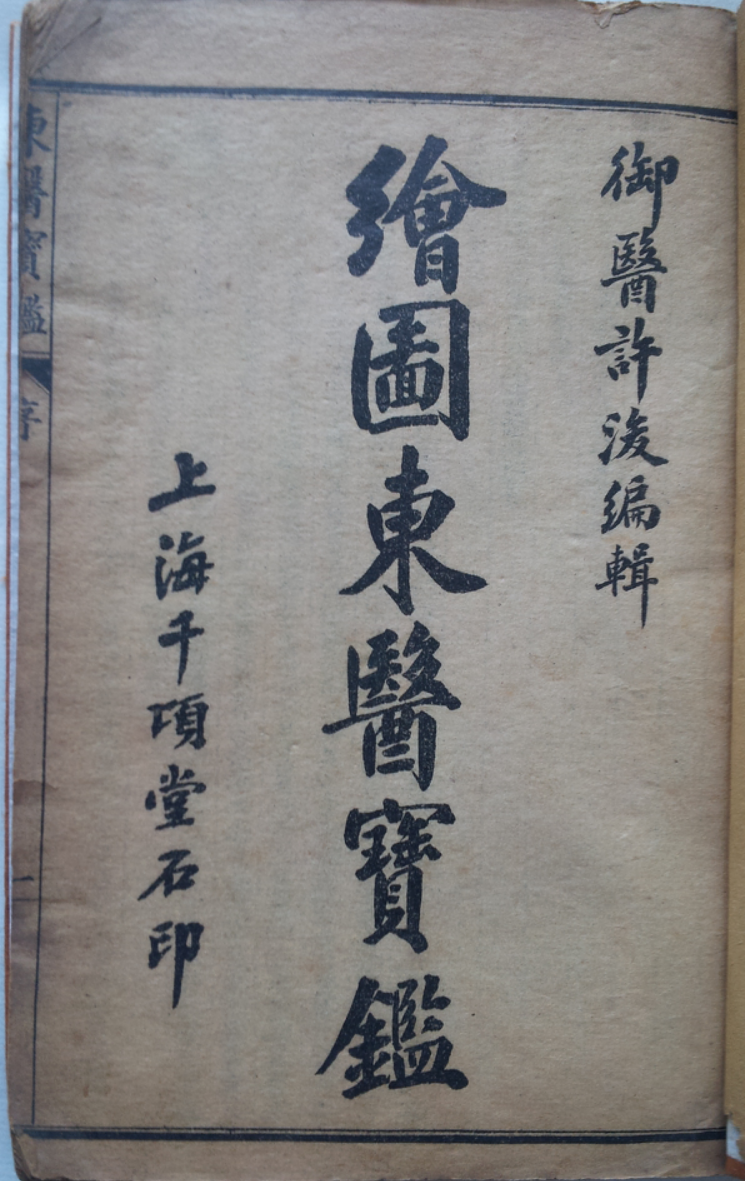 御醫許浚編輯
繪圖東醫寶鑑
上海千項堂石印
東醫寶鑑
序
一